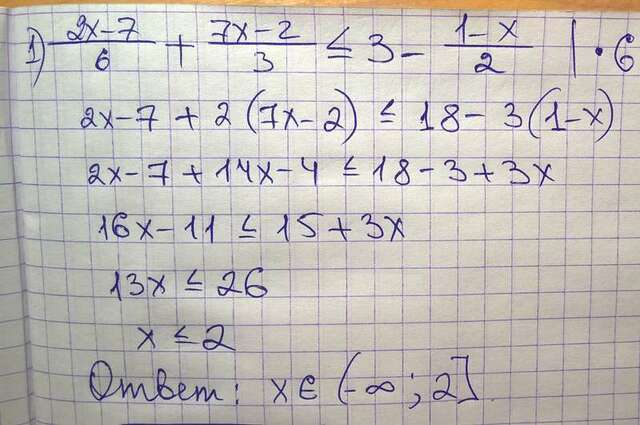 1) (2x-7)/6 + (7x-2)/3 ≤ 3 - (1-x)/2 | · 6
2x-7 + 2(7x-2) ≤ 18 - 3(1-x)
2x-7+14x-4 ≤ 18-3+3x
16x-11 ≤ 15+3x
13x ≤ 26
x ≤ 2
Ответ: x∈(-∞; 2].